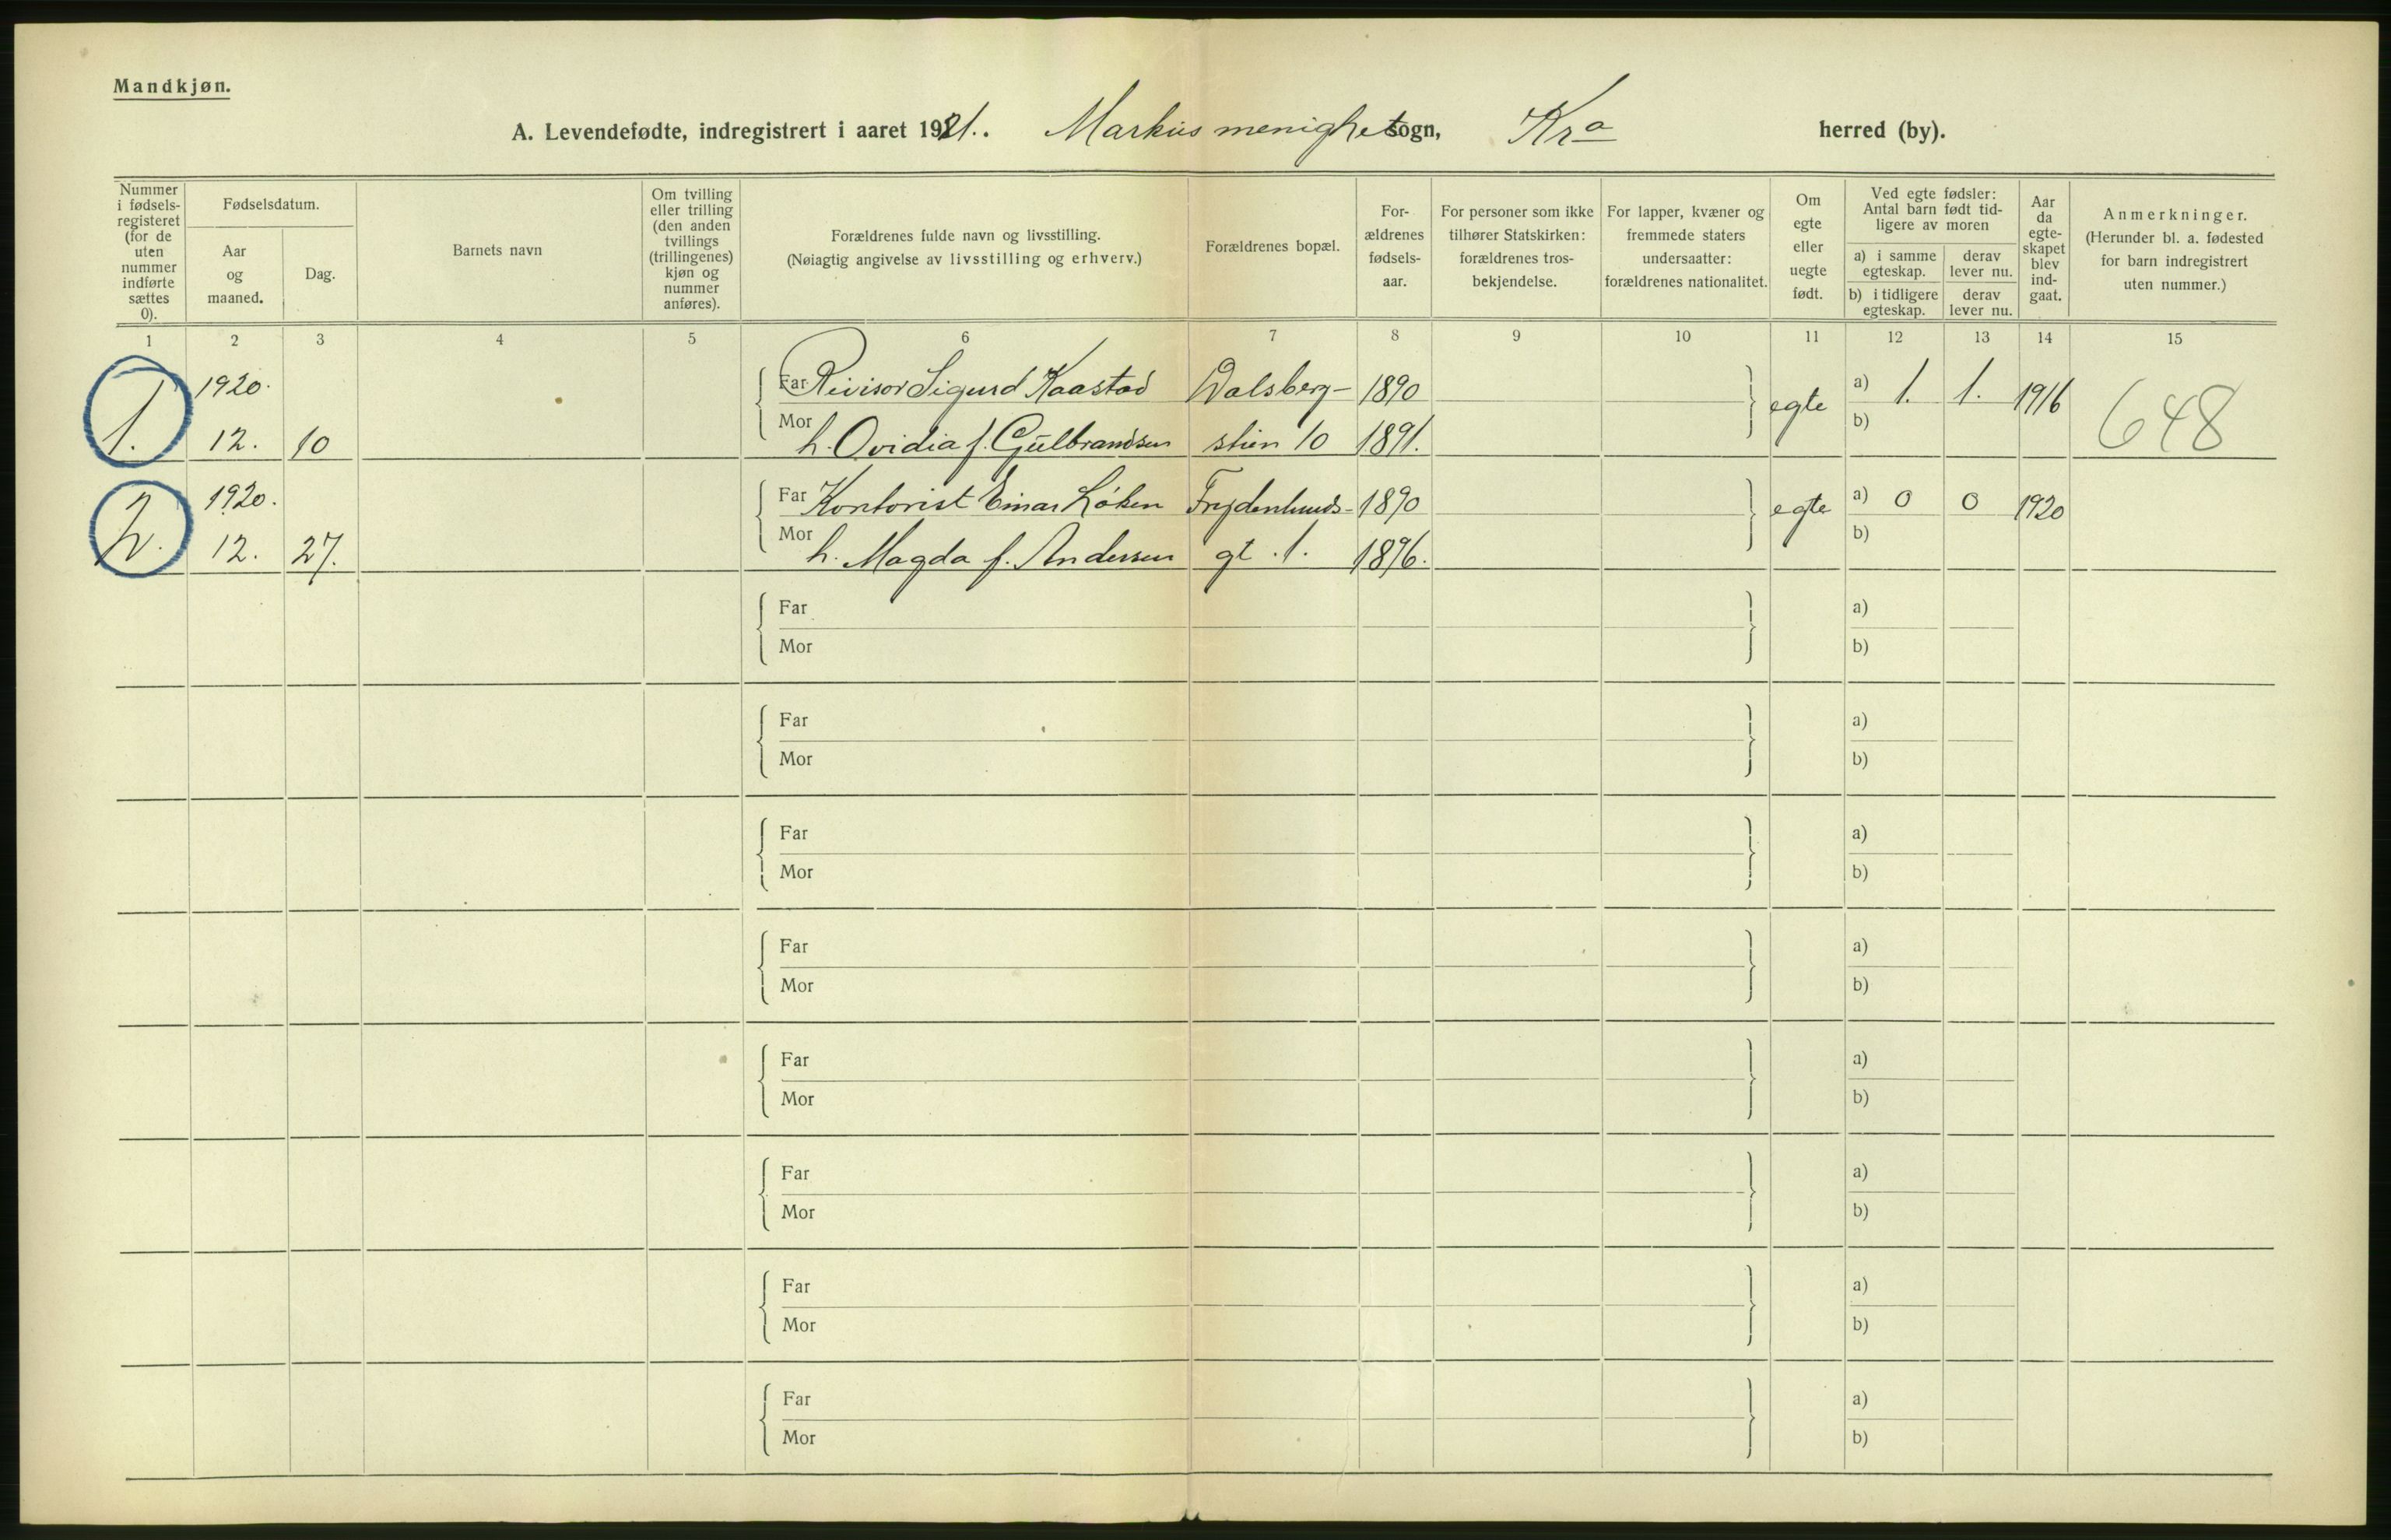 Mandkjøn.
A. Levendefødte, indregistrert i aaret 1921. Markus menighet sogn, Kra herred (by).
Nummer i fødsels-registeret (for de uten nummer indførte sættes 0).
Fødselsdatum.
Aar og maaned.
Dag.
Barnets navn
Om tvilling eller trilling (den anden tvillings (trillingenes) kjøn og nummer anføres).
Forældrenes fulde navn og livsstilling.
(Nøiagtig angivelse av livsstilling og erhverv.)
Forældrenes bopæl.
For-ældrenes fødsels-aar.
For personer som ikke tilhører Statskirken: forældrenes tros-bekjendelse.
For lapper, kvæner og fremmede staters undersaatter: forældrenes nationalitet.
Om egte eller uegte født.
Ved egte fødsler: Antal barn født tid-ligere av moren
a) i samme egteskap.
derav lever nu.
b) i tidligere egteskap.
derav lever nu.
Aar da egte-skapet blev ind-gaat.
Anmerkninger.
(Herunder bl. a. fødested for barn indregistrert uten nummer.)
1 2 3 4 5 6 7 8 9 10 11 12 13 14 15
1. 1920. Far Revisor Sigurd Kaastad Dalsberg- 1890 egte a) 1. 1. 1916 648
12. 10 Mor h. Ovidia f. Gulbrandsen stien 10 1891. b)
2. 1920. Far Kontorist Einar Løken Frydenlunds- 1890 egte a) 0 0 1920
12. 27. Mor h. Magda f. Andersen gt. 1. 1896. b)
Far a)
Mor b)
Far a)
Mor b)
Far a)
Mor b)
Far a)
Mor b)
Far a)
Mor b)
Far a)
Mor b)
Far a)
Mor b)
Far a)
Mor b)